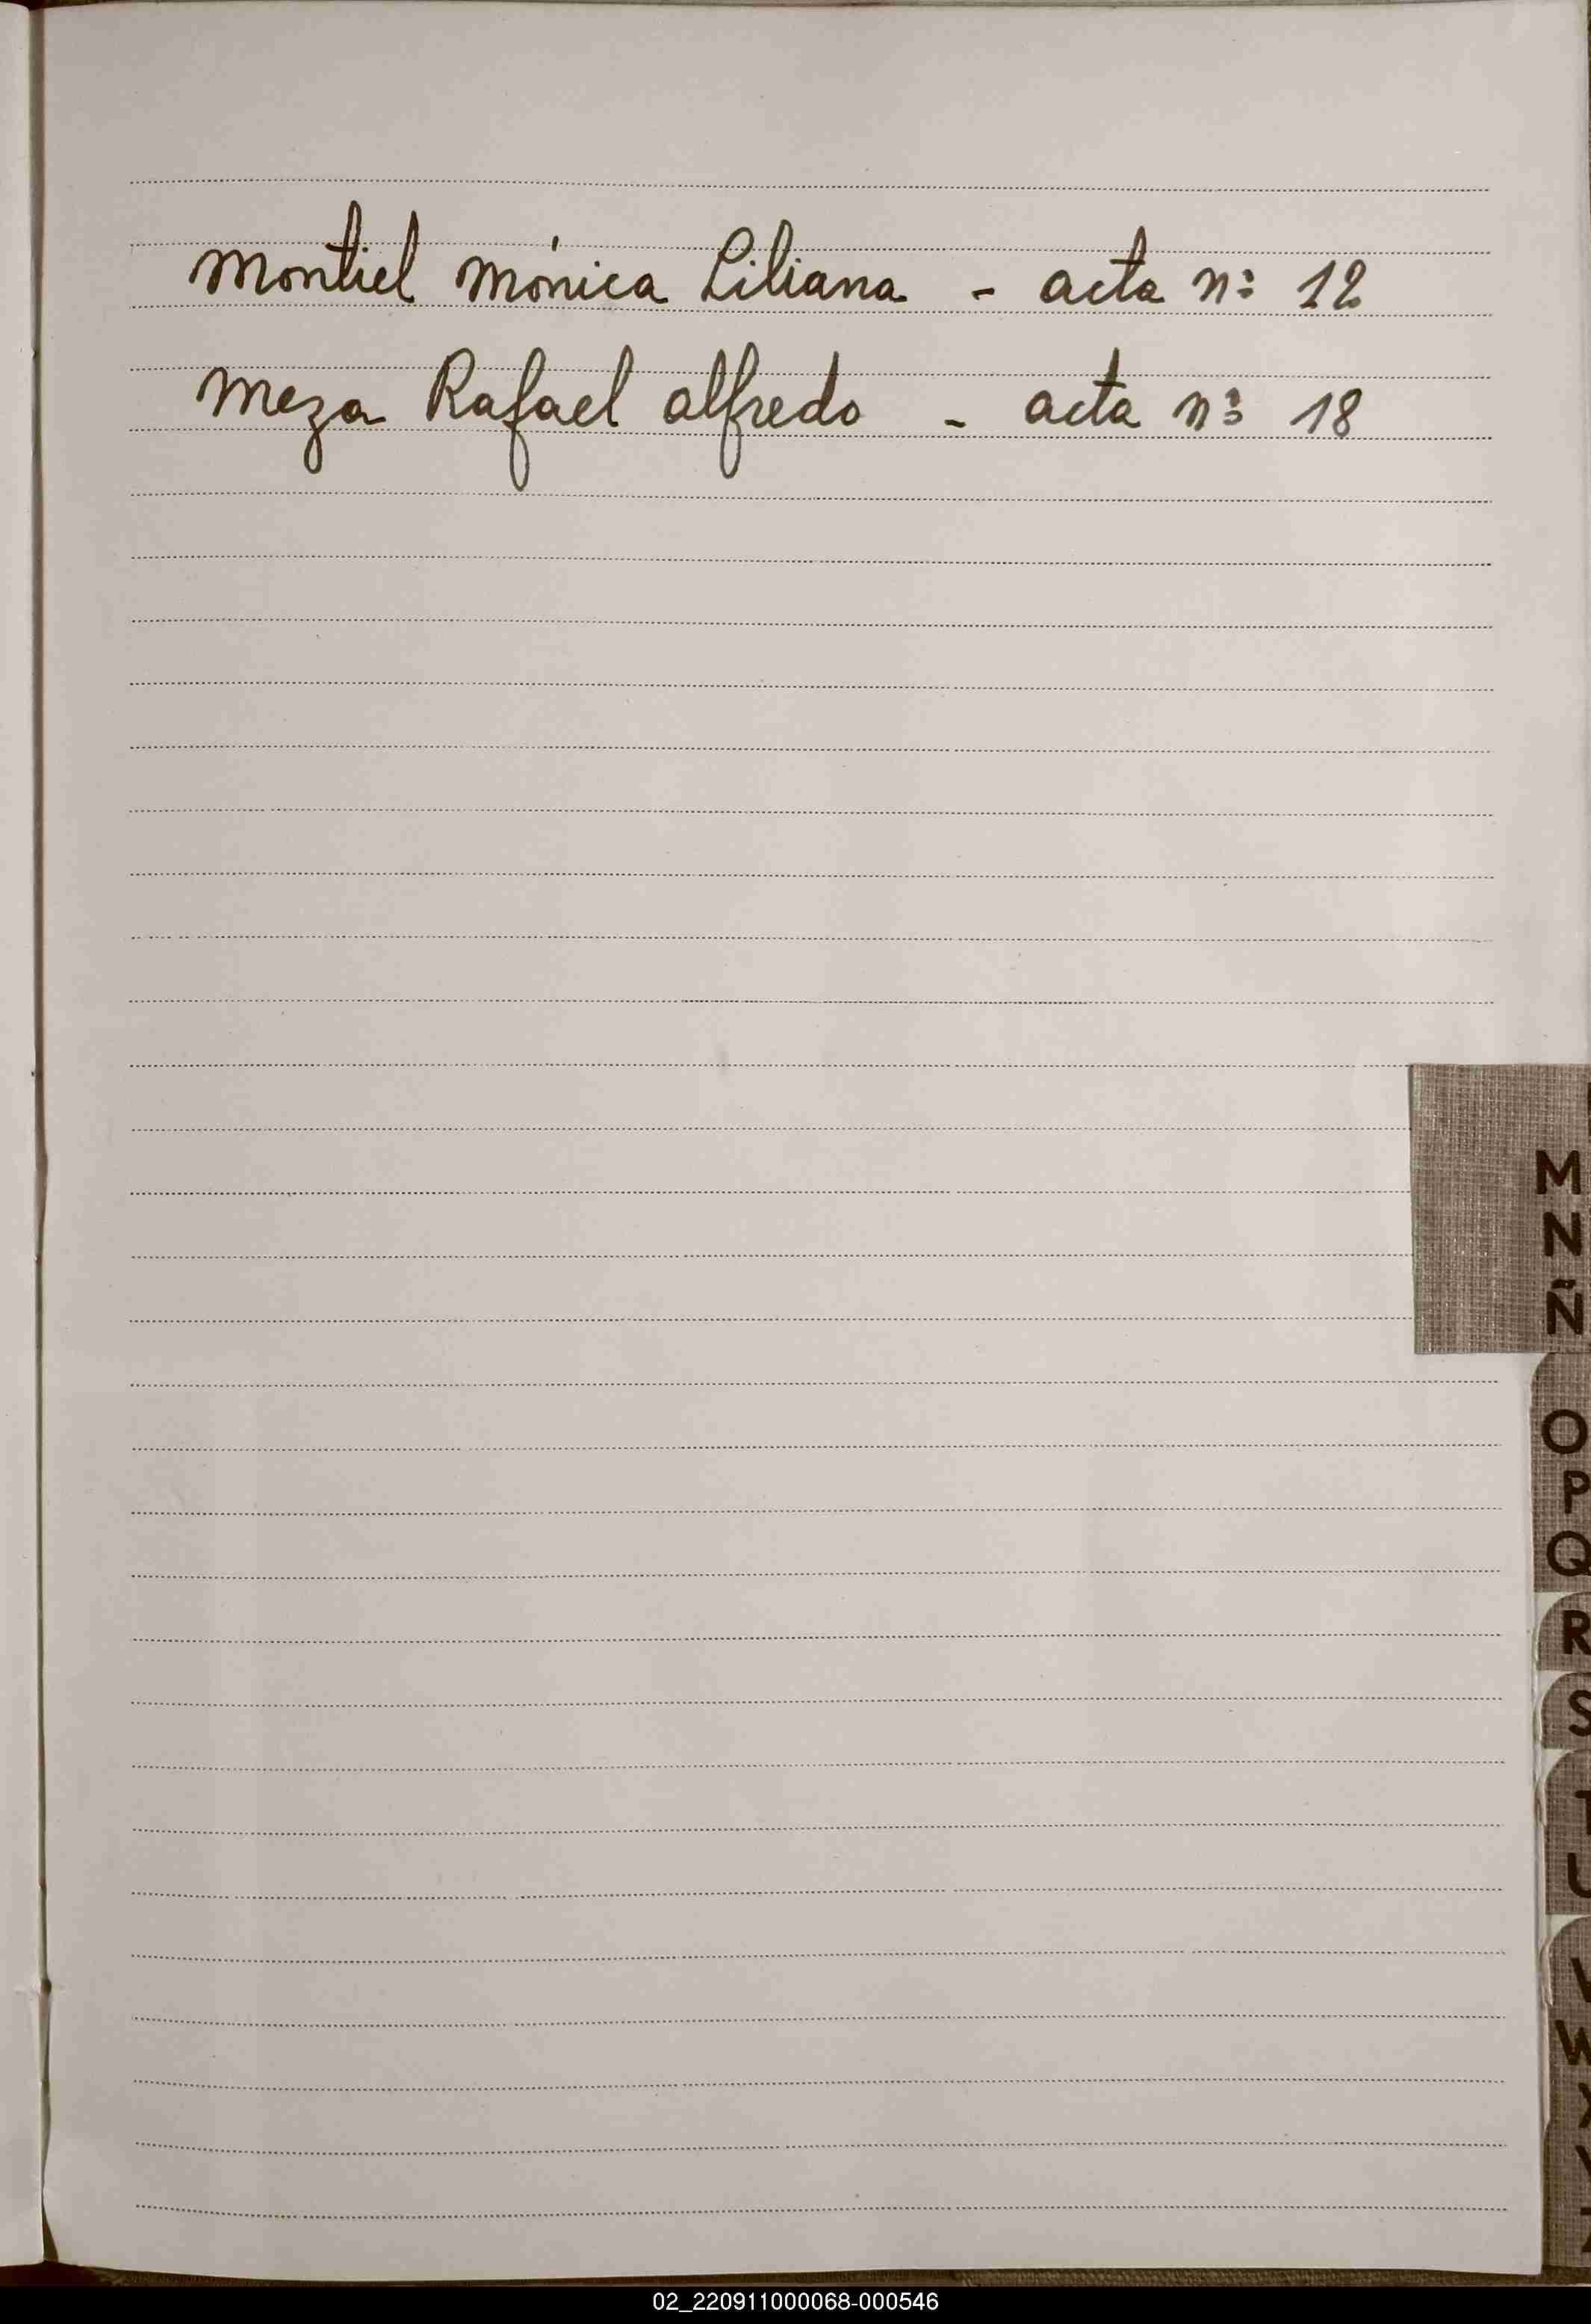 Montiel Mónica Liliana - acta nº 12
Meza Rafael Alfredo - acta nº 18
M
N
Ñ
O
P
Q
R
S
T
U
V
W
X
Y
Z
02_220911000068-000546